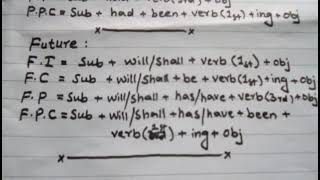 P.P.C = Sub + had + been + verb(1st) + ing + obj
Future :
F.I = Sub + will/shall + verb (1st) + obj
F.C = Sub + will/shall + be + verb(1st)+ing+obj
F.P = Sub + will/shall + has/have + verb(3rd) + obj
F.P.C = Sub + will/shall + has/have + been +
verb( ) + ing + obj